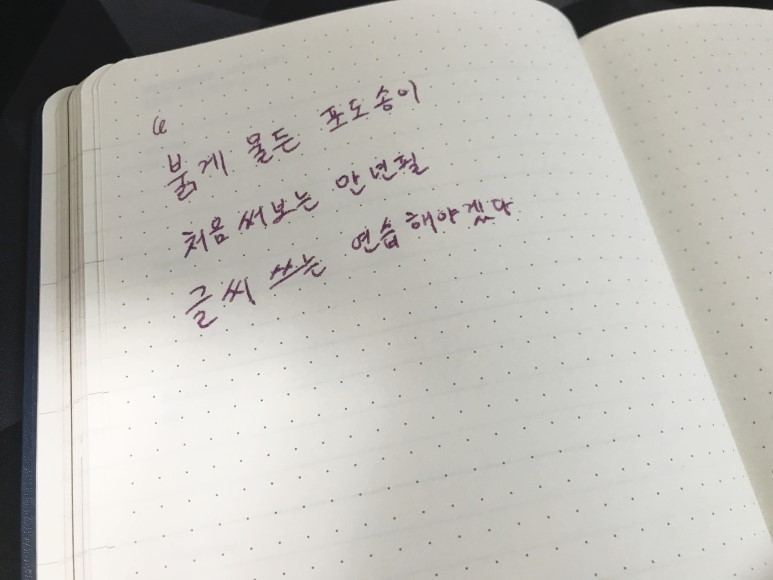 붉게 물든 포도송이
처음 써보는 만년필
글씨 쓰는 연습해야겠다